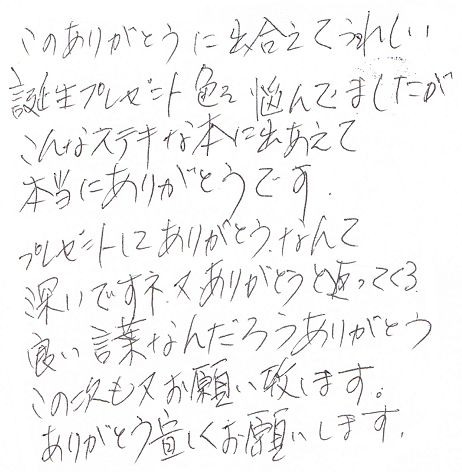 このありがとうに出合えてうれしい
誕生プレゼント色々悩んでましたが
こんなステキな本に出あえて
本当にありがとうです.
プレゼントしてありがとう.なんて
深いですネ.又ありがとうと返ってくる
良い言葉なんだろうありがとう
この次も又お願い致します。
ありがとう宜しくお願いします.